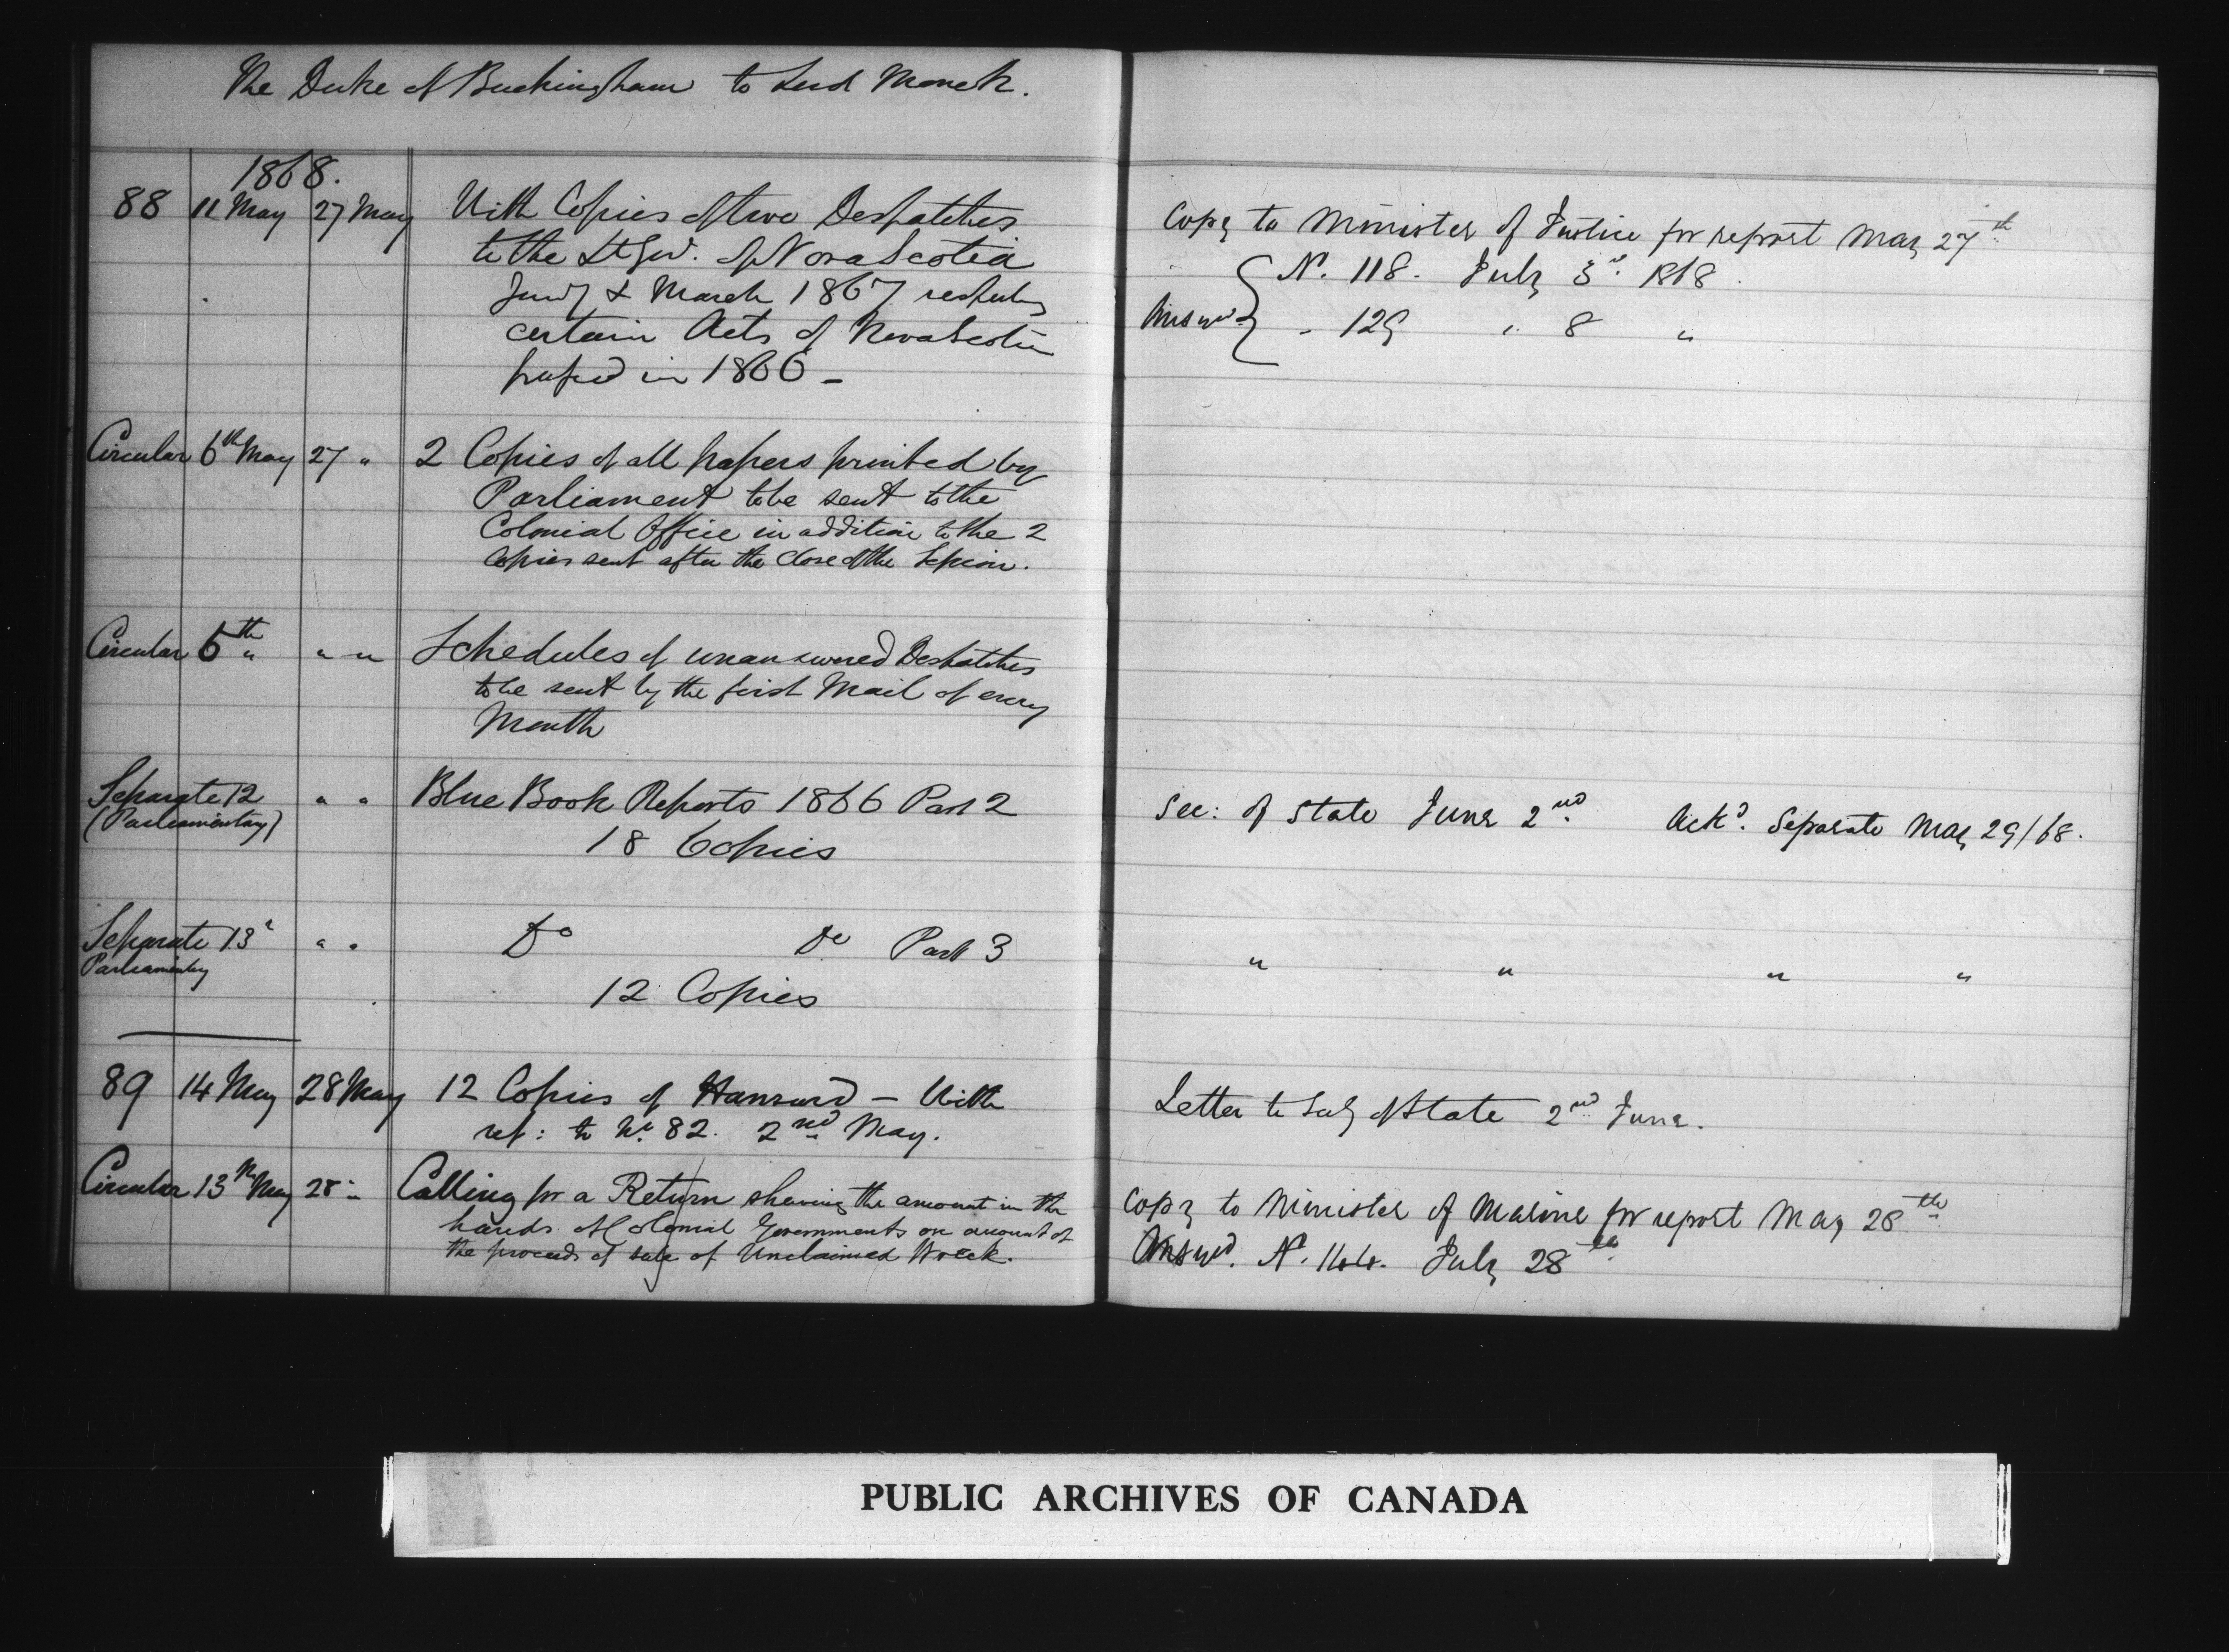 The Duke of Buckingham to Lord Monck.
1868.
88 11 May 27 May With Copies of two Despatches
to the Lt Gov. of Nova Scotia
Jany & March 1867 respecting
certain Acts of Nova Scotia
passed in 1866 -
Copy to Minister of Justice for report May 27th
Answd { No. 118. July 3rd. 1868.
" 129 " 8 "
Circular 6th May 27 " 2 Copies of all papers printed by
Parliament to be sent to the
Colonial Office in addition to the 2
Copies sent after the close of the Session.
Circular 6th " " " Schedules of unanswered Despatches
to be sent by the first Mail of every
Month
Separate 12 " " Blue Book Reports 1866 Part 2
(Parliamentary)
18 Copies
Sec: of State June 2nd. Ackd. Separate May 29/68.
Separate 13 " " " Do Do Part 3
Parliamentary
12 Copies
" " " "
89 14 May 28 May 12 Copies of Hansard - With
ref: to No. 82. 2nd May.
Letter to Secy of State 2nd June.
Circular 13th May 28 " Calling for a Return shewing the amount in the
hands of Colonial Governments on account of
the proceeds of sale of Unclaimed Wreck.
Copy to Minister of Marine for report May 28th
Answd. No. 144. July 28th
PUBLIC ARCHIVES OF CANADA